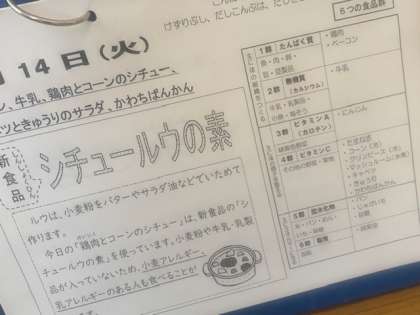 けずりぶし、だしこんぶは、だし
月14日(火)
ン、牛乳、鶏肉とコーンのシチュー、
ツときゅうりのサラダ、かわちばんかん
新食品
シチュールウの素
ルウは、小麦粉をバターやサラダ油などでいためて
作ります。
今日の「鶏肉とコーンのシチュー」は、新食品の「シ
チュールウの素」を使っています。小麦粉や牛乳・乳製
品が入っていないため、小麦アレルギー、
乳アレルギーのある人も食べることが
6つの食品群
1群 たんぱく質
魚・肉・卵・
豆・豆製品
・鶏肉
・ベーコン
2群 無機質
(カルシウム)
牛乳・乳製品
・牛乳
3群 ビタミンA
(カロテン)
緑黄色野菜
・にんじん
4群 ビタミンC
その他の野菜・果物
・たまねぎ
・コーン(市)
・グリンピース(市)
・マッシュルーム(水煮)
・キャベツ
・きゅうり
・かわちばんかん
5群 炭水化物
米・パン・めん・
いも・砂糖
・パン
・じゃがいも
・砂糖
6群 脂質